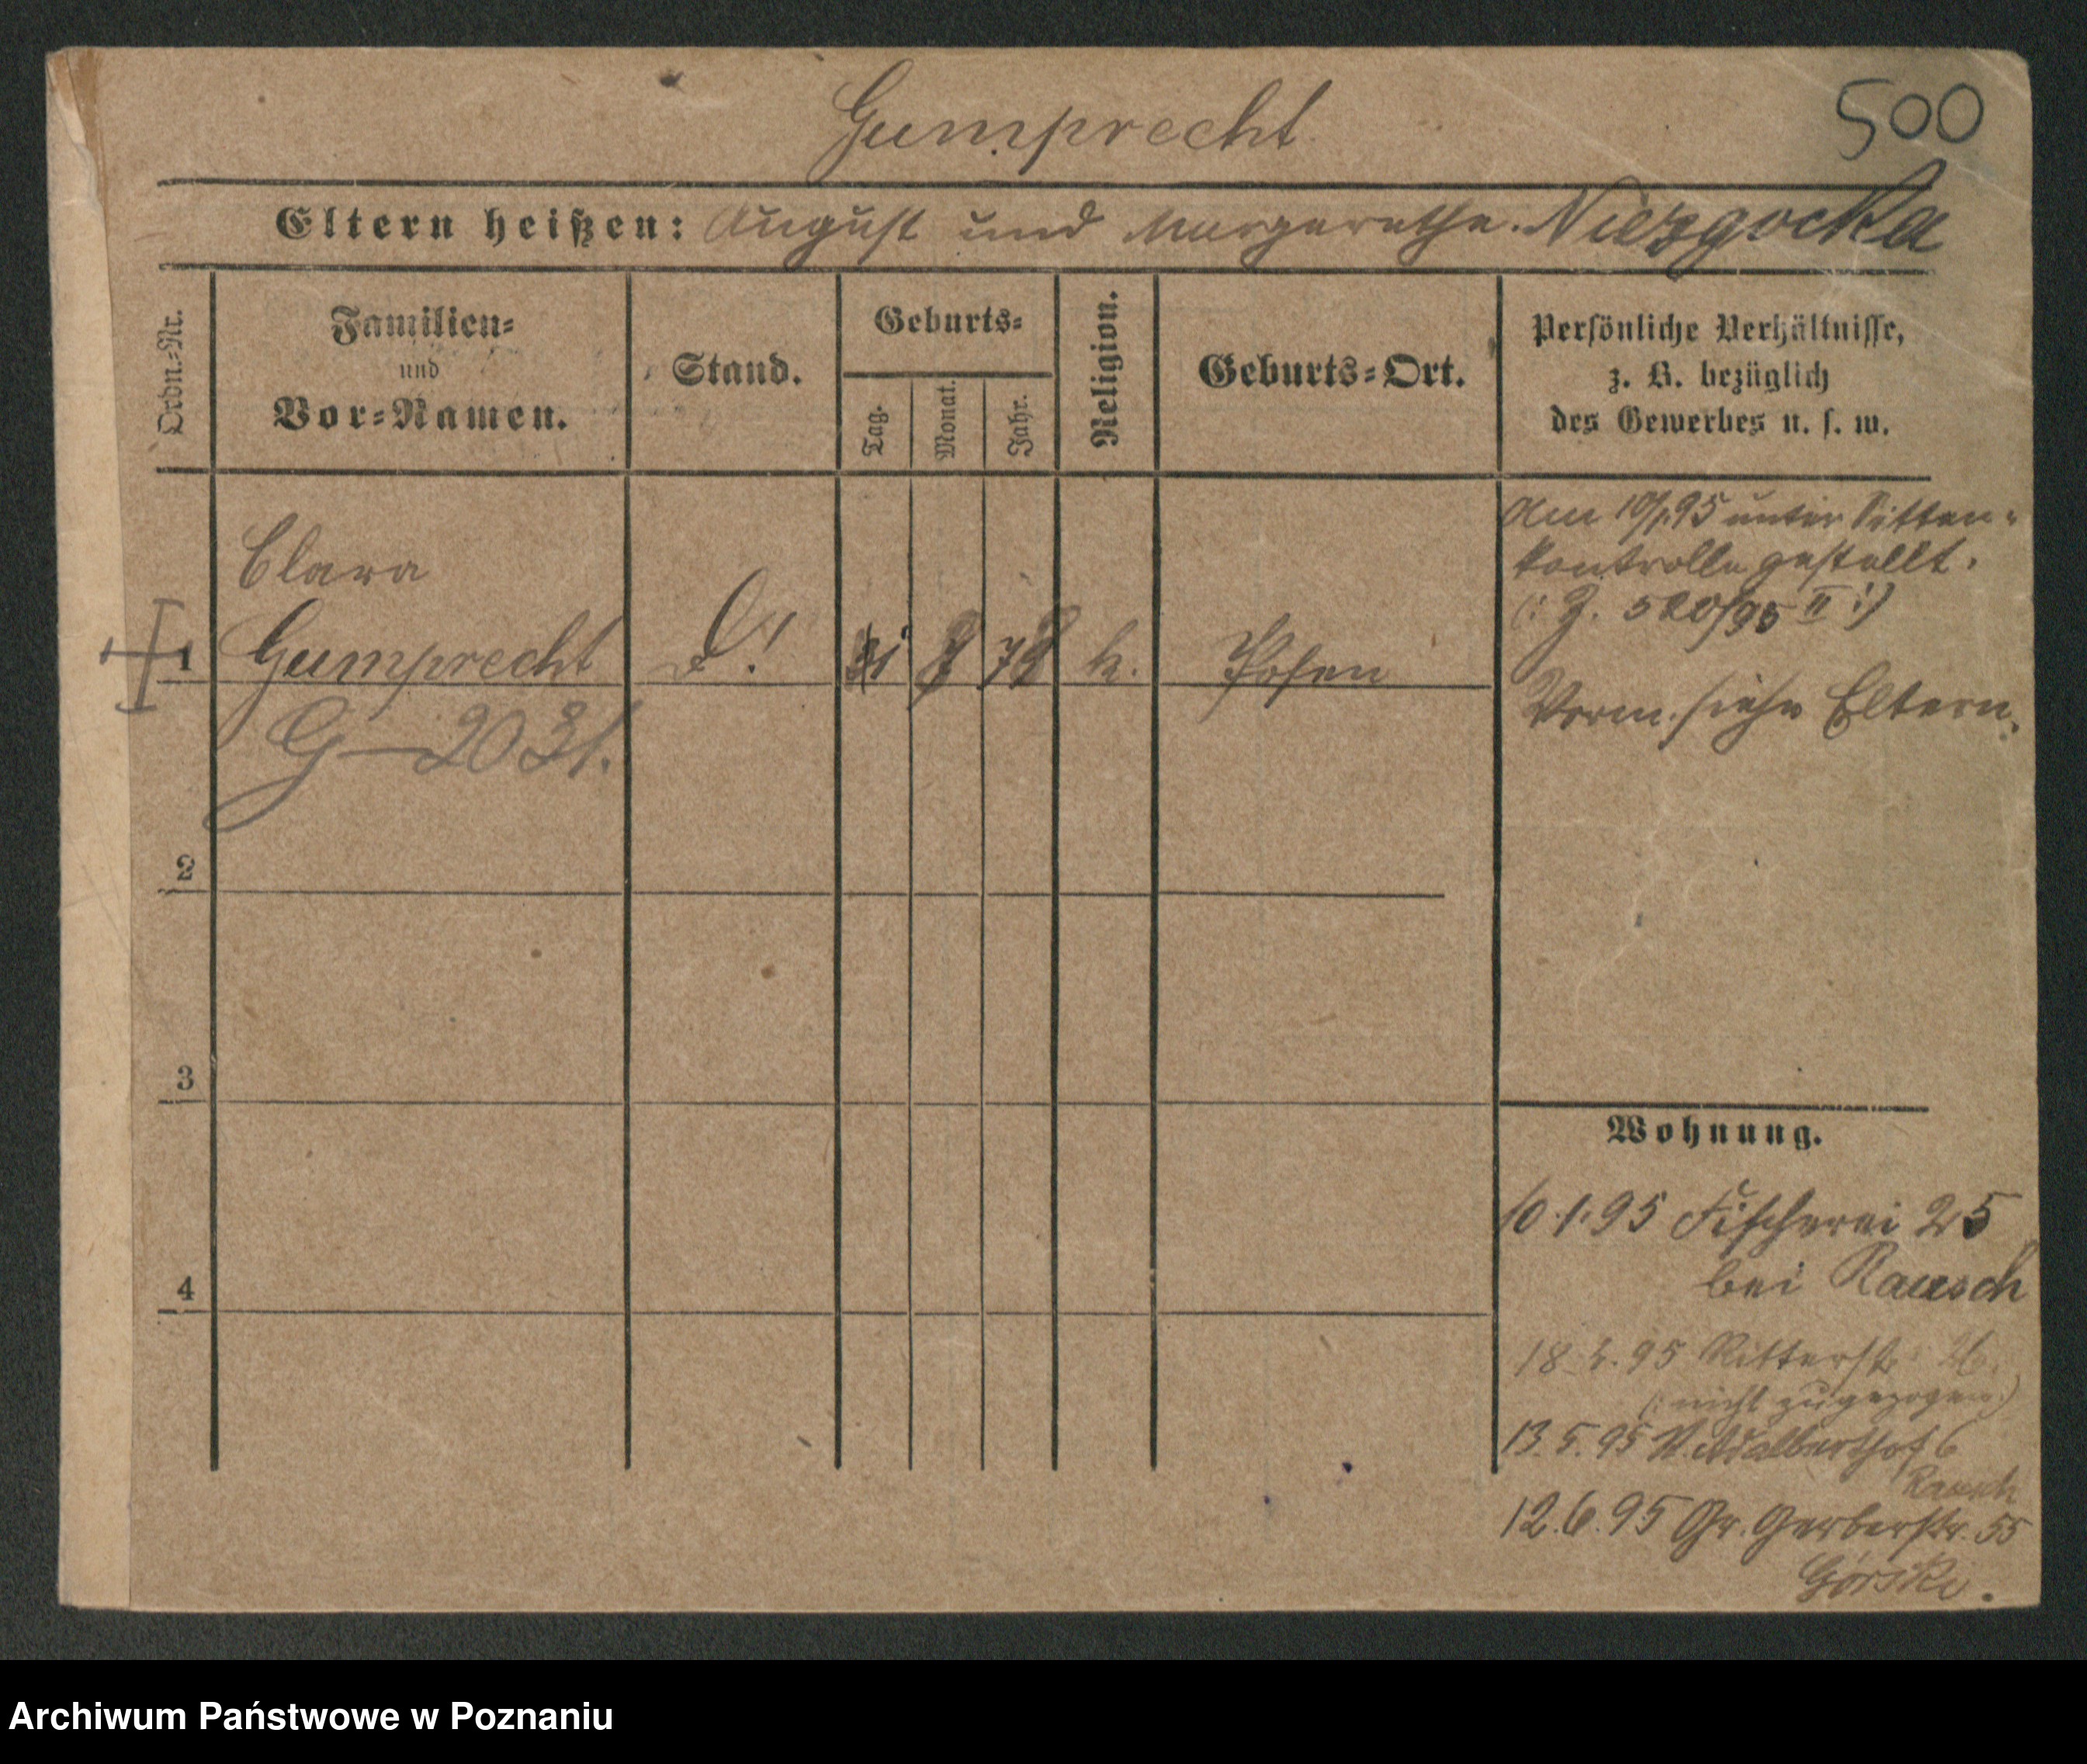 Gumprecht
500
Eltern heißen: August und Margarethe Niezgocka
Ordn.-Nr.
Familien-
und
Vor-Namen.
Stand.
Geburts-
Tag.
Monat.
Jahr.
Religion.
Geburts-Ort.
Persönliche Verhältnisse,
z. B. bezüglich
des Gewerbes u. s. w.
Am 10/1.95 unter Sitten-
kontrolle gestellt.
(: J. 520/95 II :)
Clara
1 Gumprecht 78 k. Posen
Vorm. siehe Eltern.
G-2031.
2
3
4
Wohnung.
10.1.95 Fischerei 25
bei Rausch
18.2.95 Ritterstr. 26.
(: nicht zugezogen :)
13.5.95 Adalberthof 6
Rausch
12.6.95 Gr. Gerberstr. 55
Górski.
Archiwum Państwowe w Poznaniu